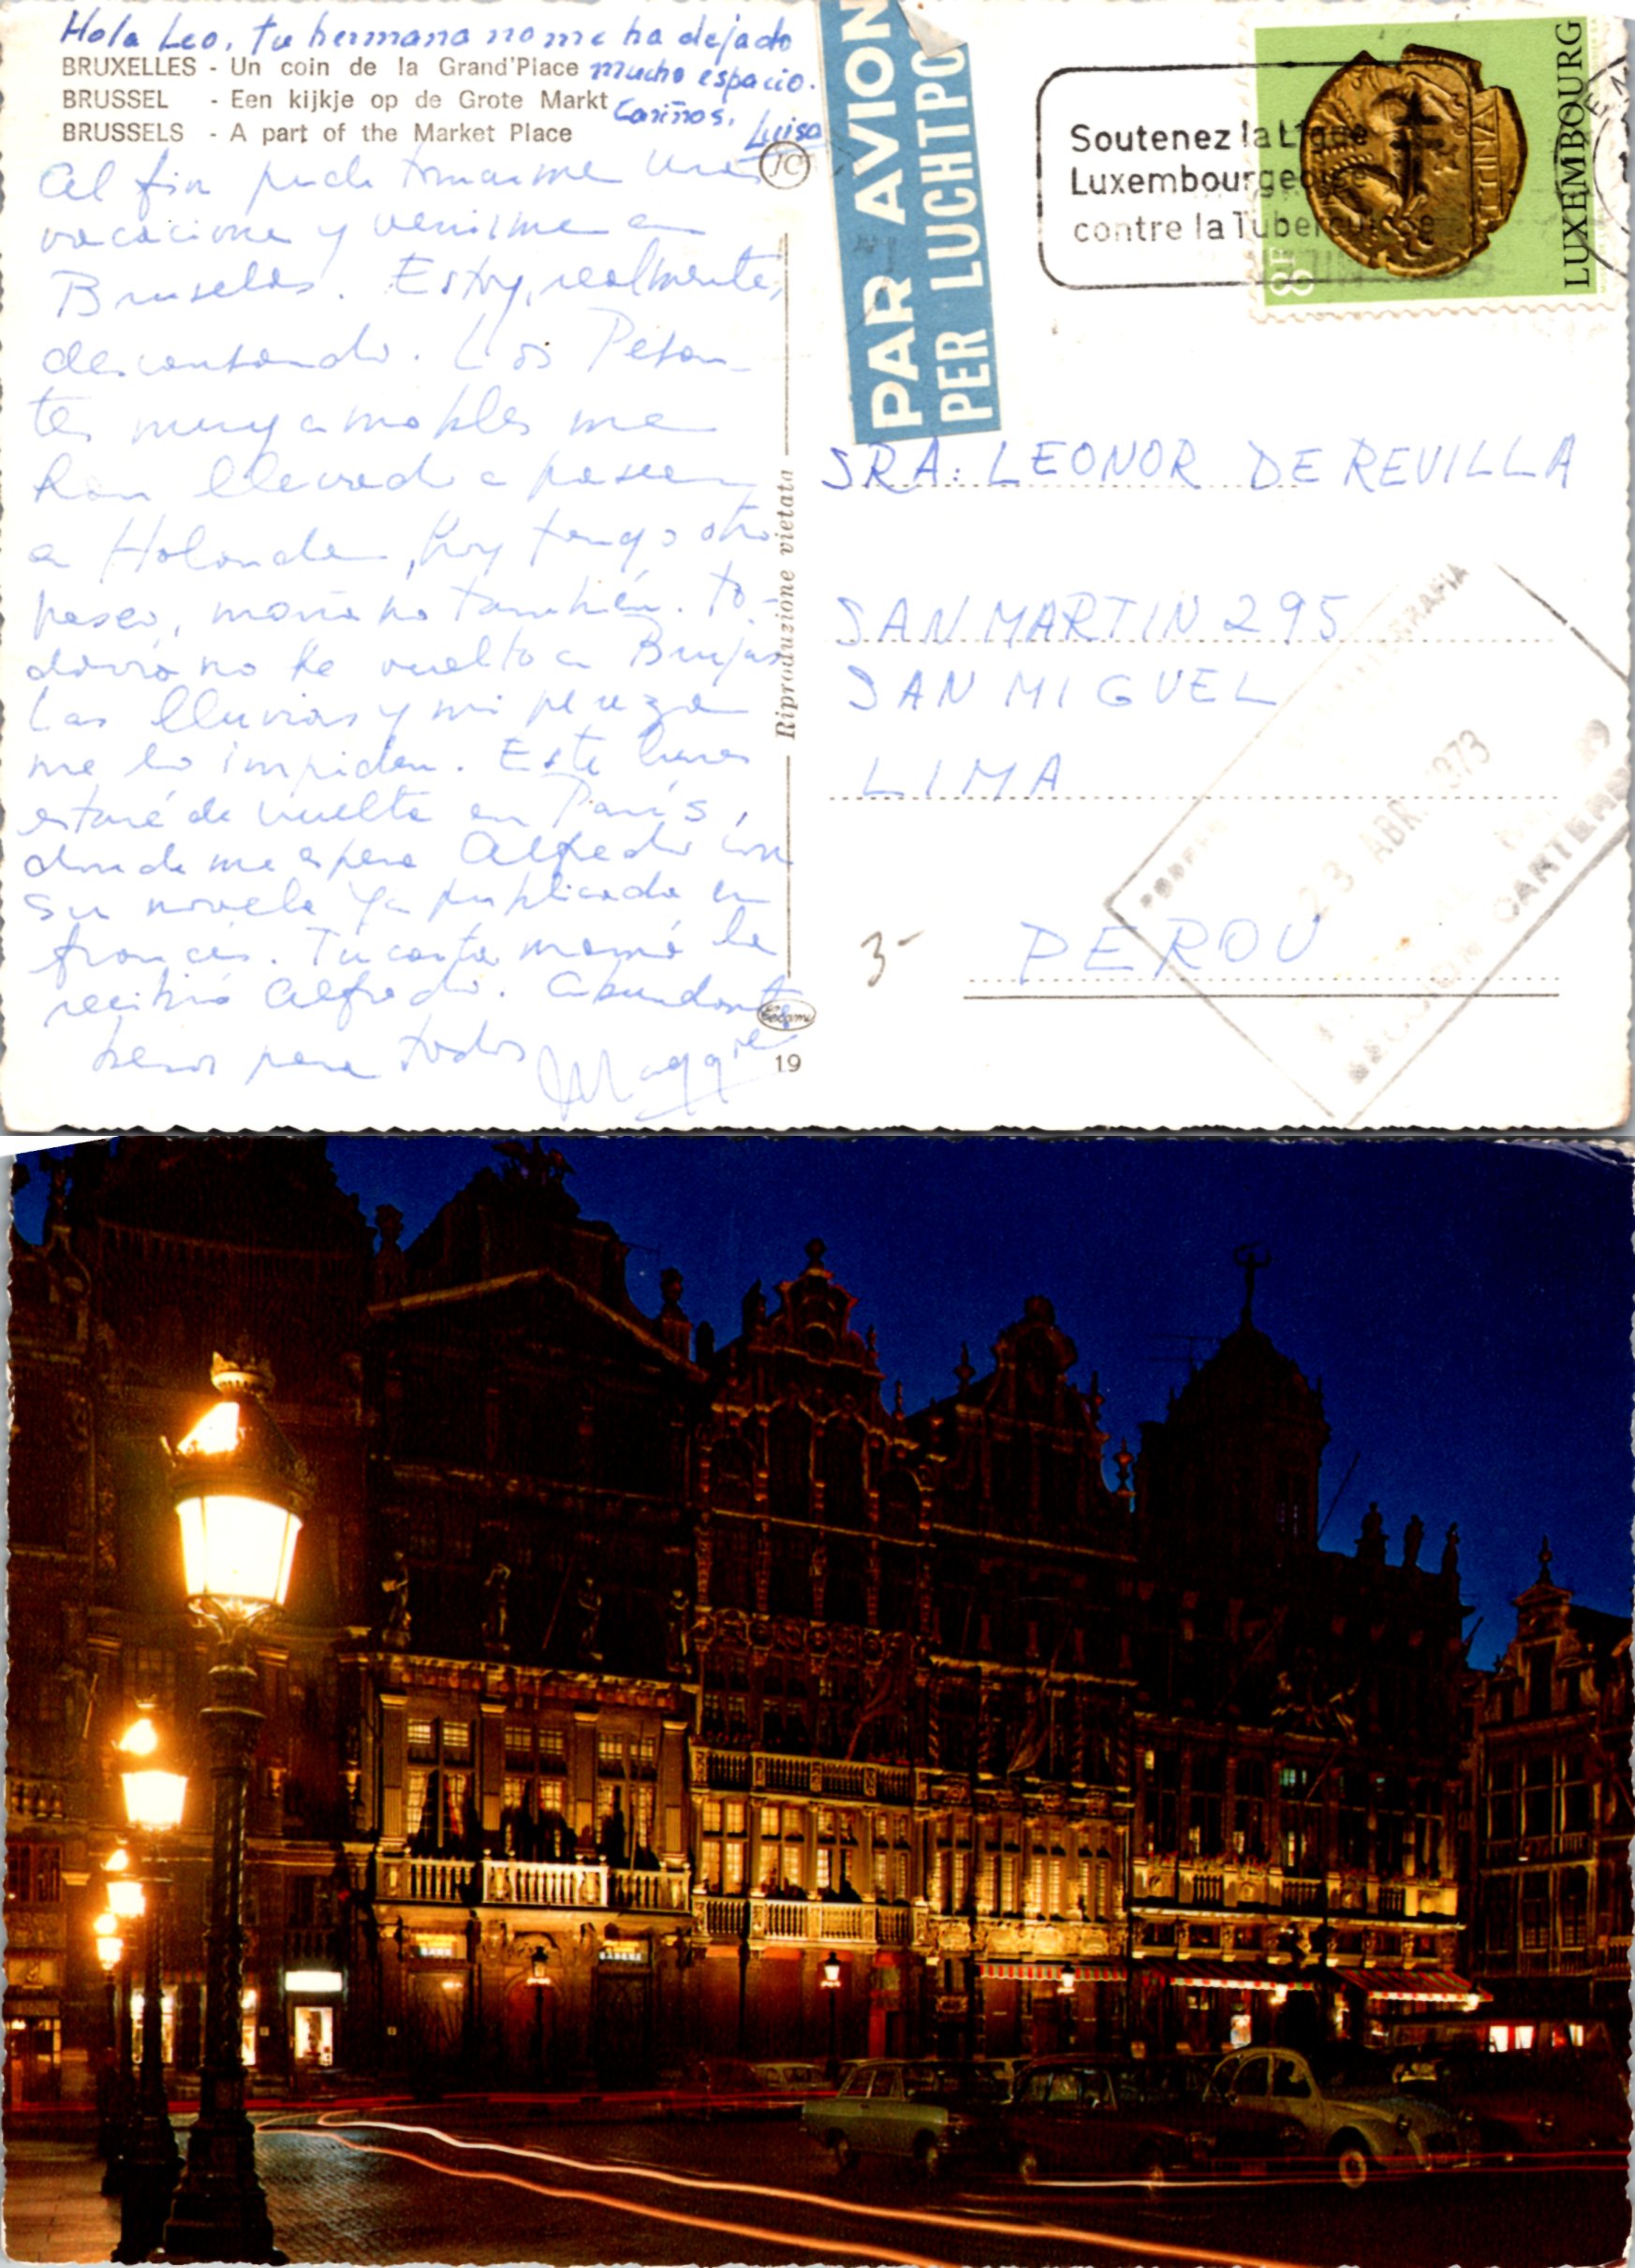 Hola Leo, tu hermana no me ha dejado
mucho espacio.
Cariños.
Luisa
BRUXELLES - Un coin de la Grand'Place
BRUSSEL - Een kijkje op de Grote Markt
BRUSSELS - A part of the Market Place
Al fin pude tomarme unas
vacaciones y venirme a
Bruselas. Estoy, realmente,
descansando. Los
muy amables me
han llevado a pasear
a Holanda, hoy tengo otro
paseo, mañana también. To-
davía no he vuelto a Brujas
Las lluvias y mi pereza
me lo impiden. Este lunes
estaré de vuelta en París,
donde me espera Alfredo con
su novela ya publicada en
francés. Tu carta mamá la
recibió Alfredo. Abundantes
besos para todos
Maggie
JC
Riproduzione vietata
19
PAR AVION
PER LUCHTPO
Soutenez la Ligue
Luxembourgeoise
contre la Tuberculose
8F
LUXEMBOURG
SRA: LEONOR DE REVILLA
SAN MARTIN 295
SAN MIGUEL
LIMA
PEROU
3-
23 ABR. 1973